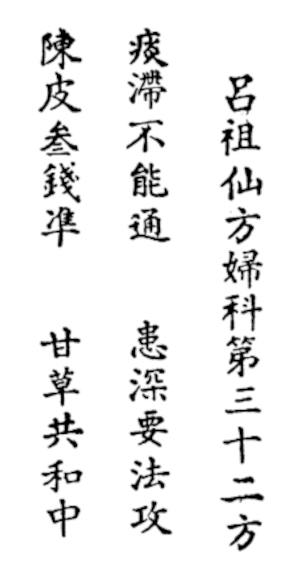 呂祖仙方婦科第三十二方
痰滯不能通　患深要法攻
陳皮叁錢準　甘草共和中